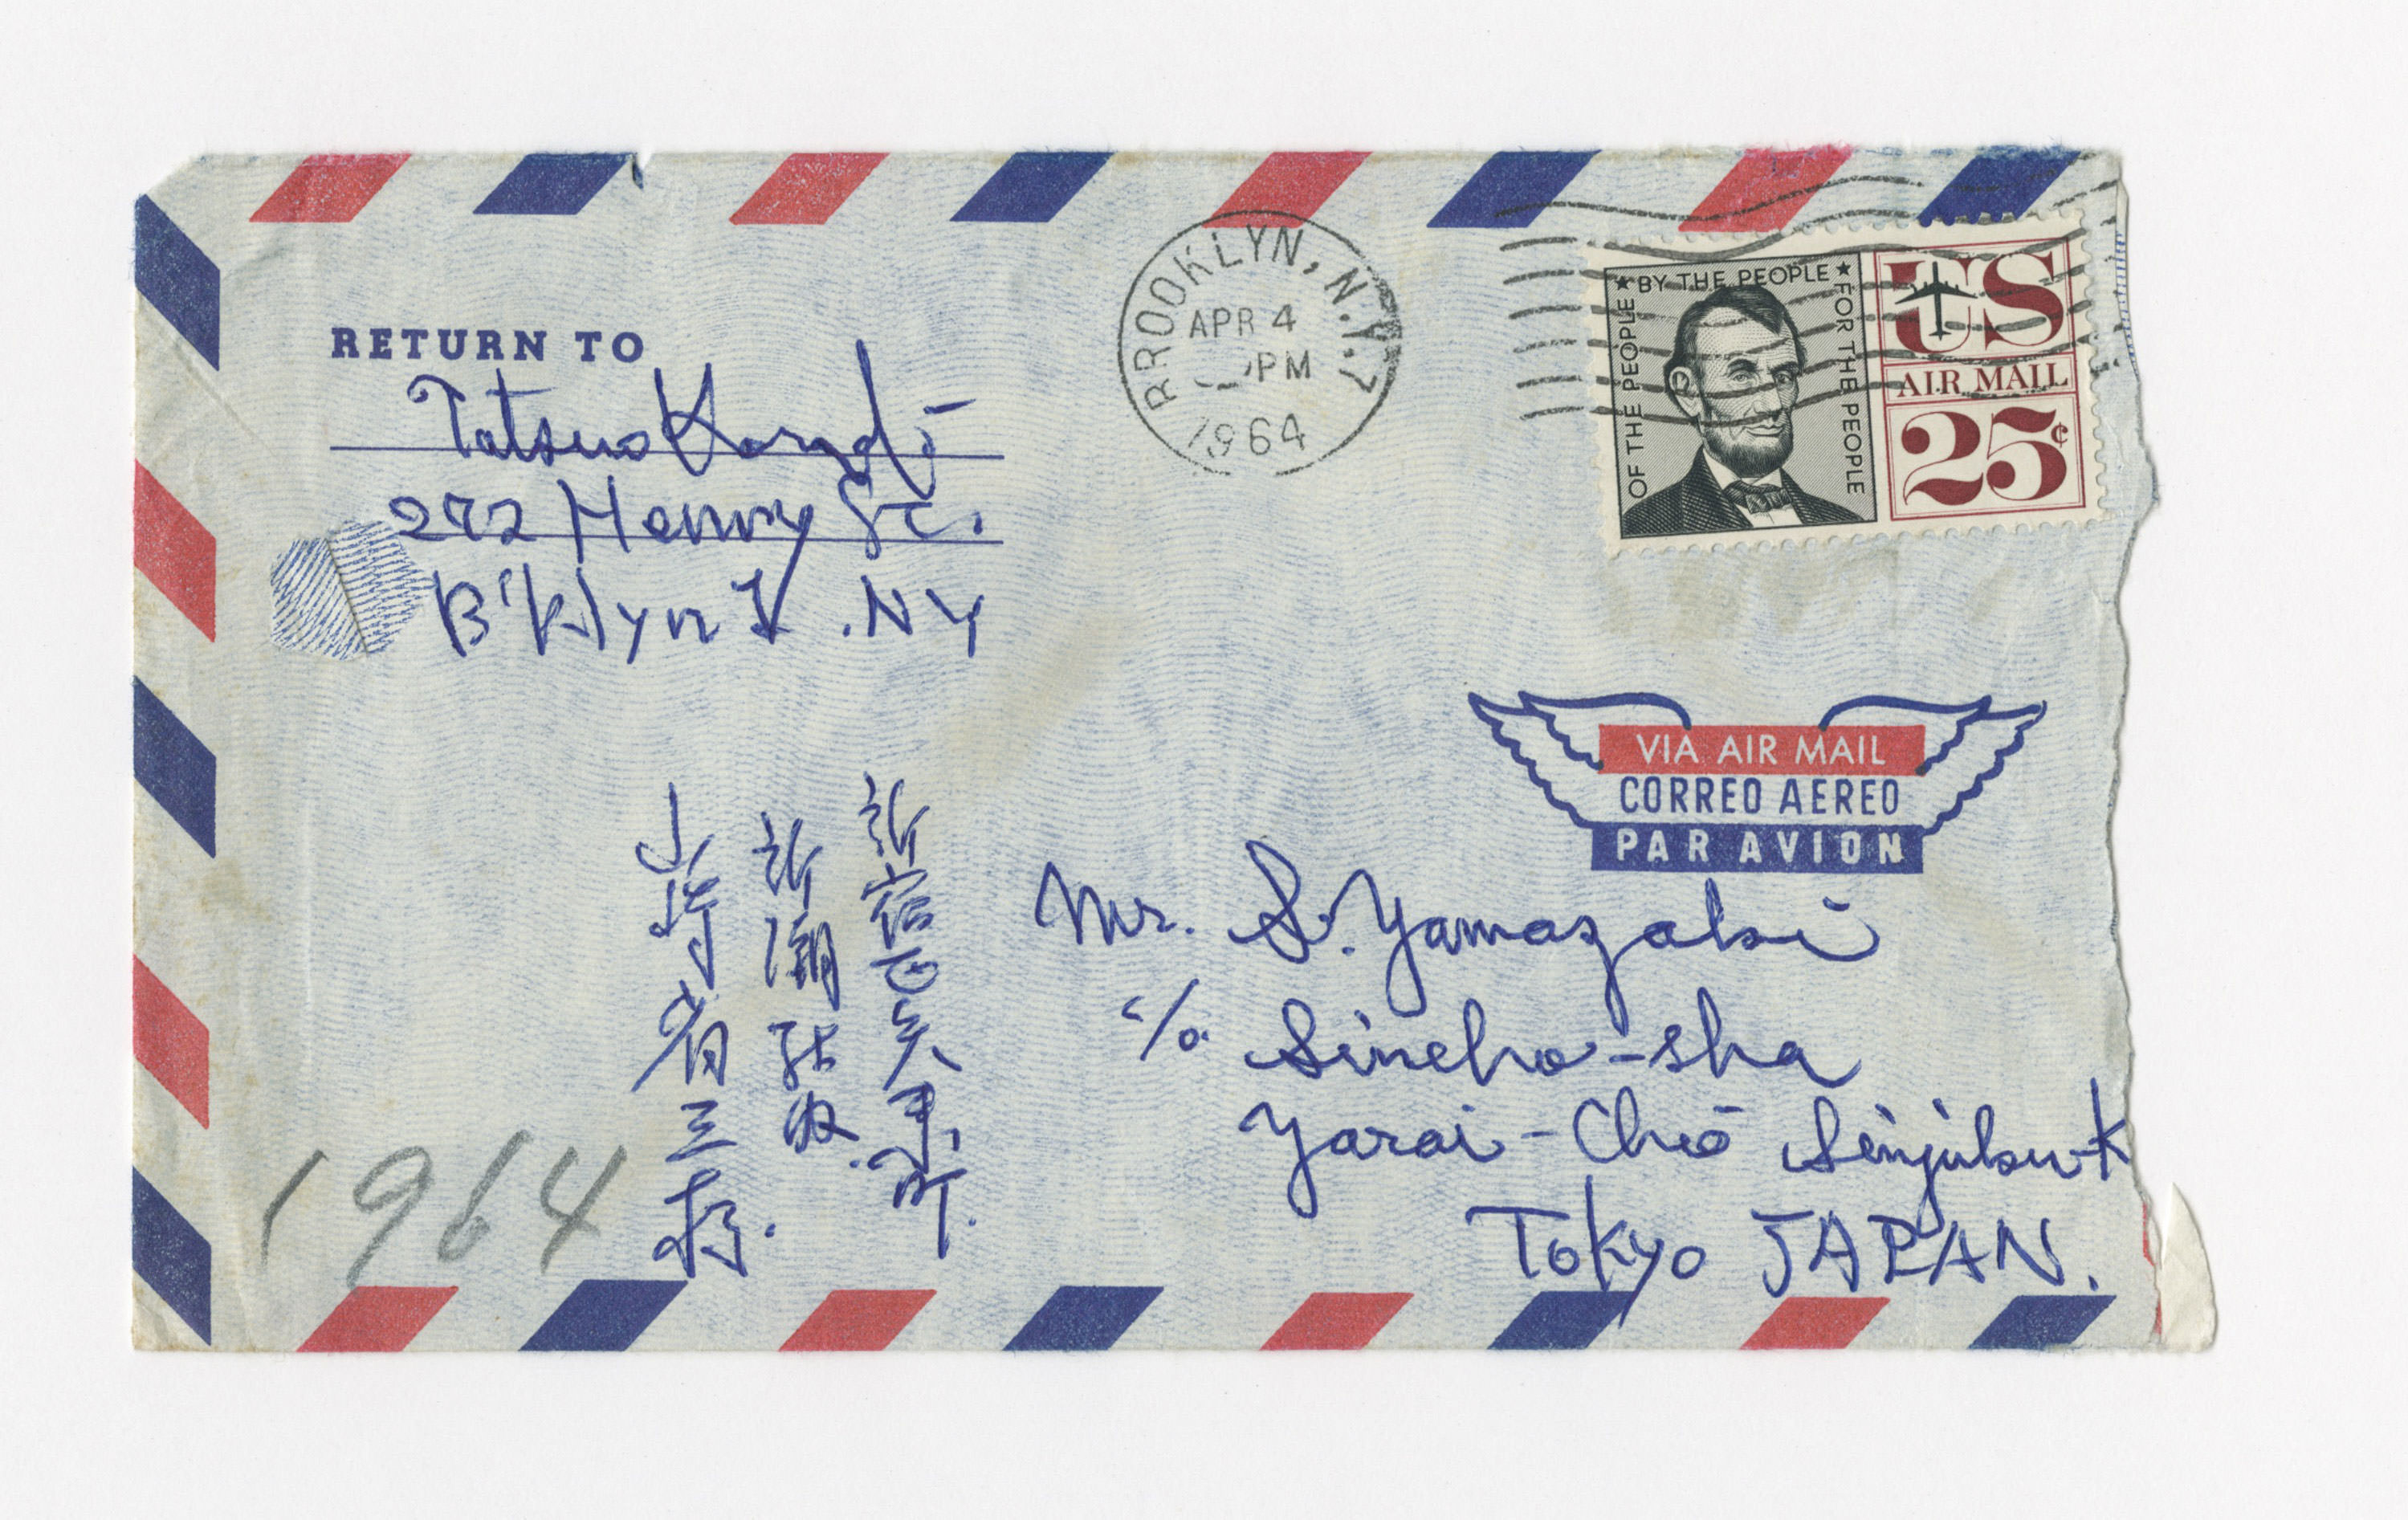 RETURN TO
Tatsuo Kondō
272 Henry St.
B'klyn 1. NY
BROOKLYN, N.Y. 7
APR 4
PM
1964
OF THE PEOPLE ★ BY THE PEOPLE ★ FOR THE PEOPLE
US
AIR MAIL
25¢
VIA AIR MAIL
CORREO AEREO
PAR AVION
Mr. S. Yamazaki
c/o. Sincho-sha
Yarai-Chō Sinjuku-K
Tokyo JAPAN.
新宿区矢来町.
新潮社
山崎省三様.
1964